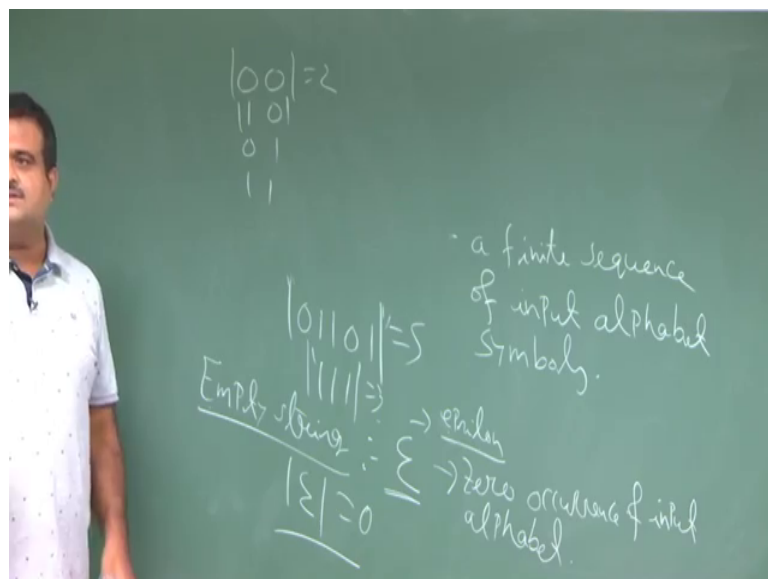 |00|=2
|1 0|
0 1
1 1
. a finite sequence
of input alphabet
symbols.
|01101|=5
|111|=3
Empty string :- ε → epsilon
→ Zero occurrence of input
alphabet.
|ε|=0